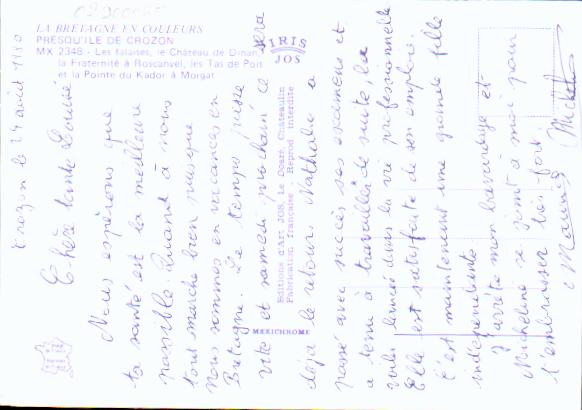 LA BRETAGNE EN COULEURS
PRESQU'ILE DE CROZON
MX 2348 - Les falaises, le Château de Dinan,
la Fraternité à Roscanvel, les Tas de Pois
et la Pointe du Kador à Morgat
IRIS
JOS
Editions d'Art JOS, Le Doaré, Châteaulin
Fabrication française Reprod interdite
MEXICHROME
Crozon le 24 août 1980
Chère tante Louise
Nous espérons que
ta santé est la meilleure
possible. Quand à nous
tout marche bien puisque
nous sommes en vacances en
Bretagne. Le temps passe
vite et samedi prochain ce sera
déjà le retour. Nathalie a
passé avec succès ses examens et
a tenu à travailler de suite, la
voilà lancée dans la vie professionnelle
Elle est satisfaite de son emploi.
C'est maintenant une grande fille
indépendante.
J'arrête mon bavardage et
Micheline se joint à moi pour
t'embrasser très fort.
Maurice Micheline